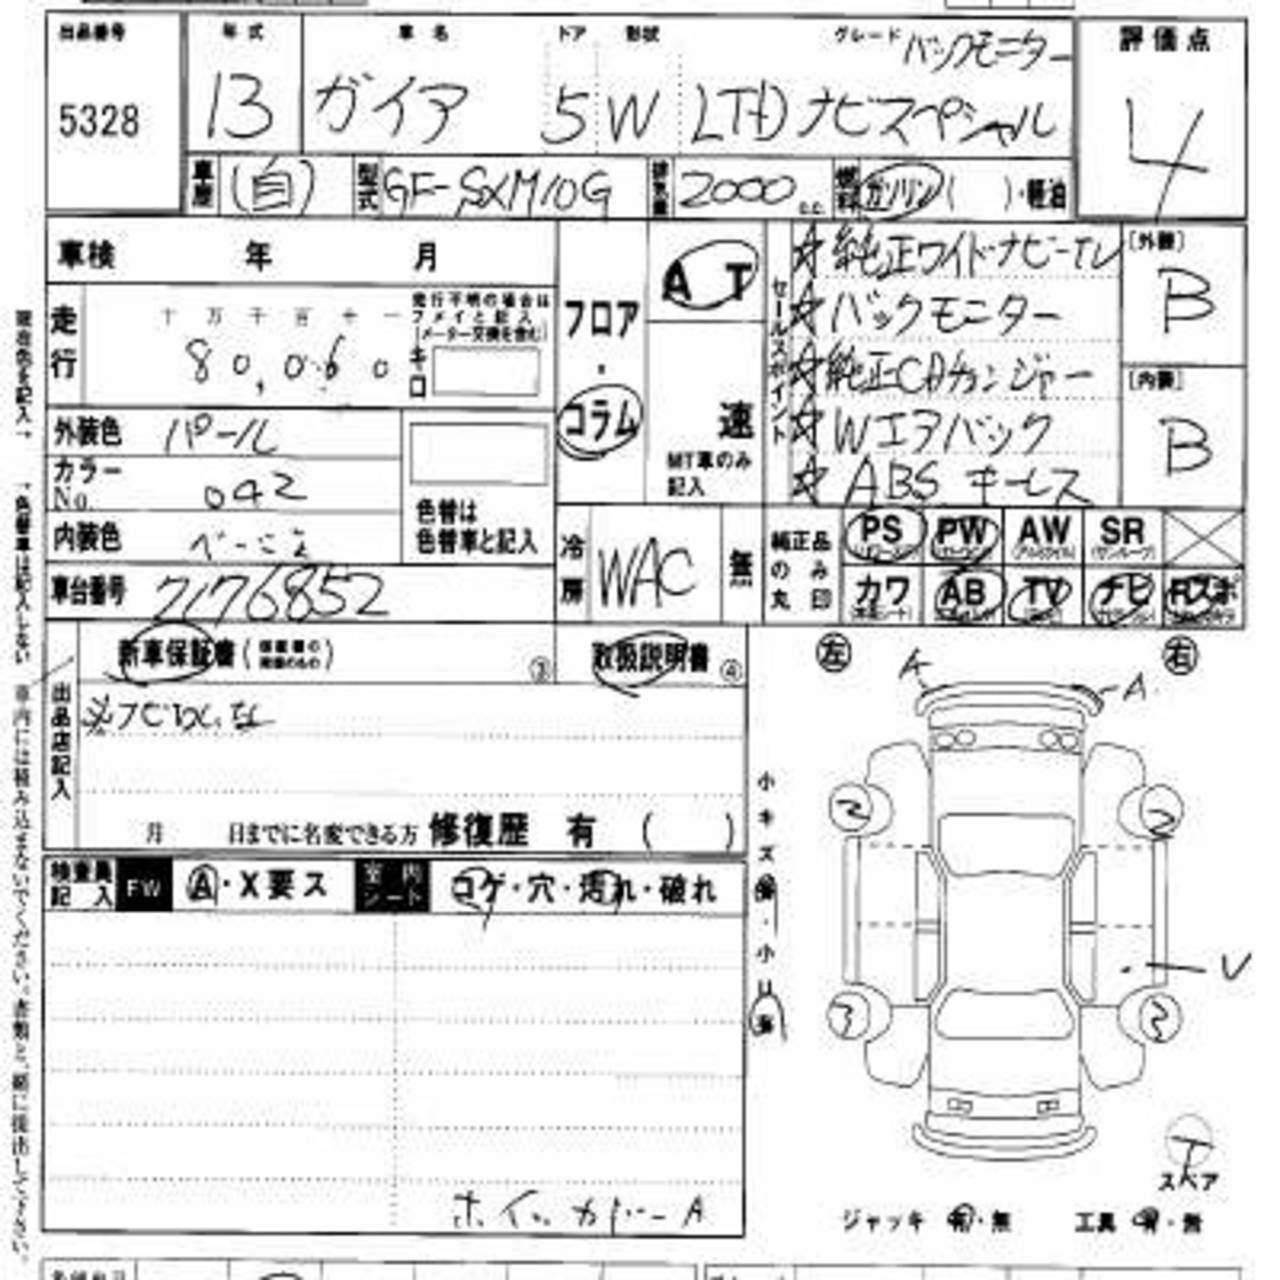 出品番号 年式 車名 ドア 形状 グレード バックモニター 評価点
5328 13 ガイア 5 W LTD ナビスペシャル 4
車歴 (自) 型式 GF-SXM10G 排気量 2000 c.c. 燃料 ガソリン ( )・軽油
車検 年 月
走行 十 万 千 百 十 一
80,060 キロ
走行不明の場合は
フメイと記入
(メーター交換を含む)
外装色 パール
カラーNo. 042
内装色 ベージュ
色替は
色替車と記入
車台番号 7176852
フロア・コラム
AT
速
MT車のみ
記入
セールスポイント
☆純正ワイドナビ-TV
☆バックモニター
☆純正CDチェンジャー
☆Wエアバック
☆ABS キーレス
[外装]
B
[内装]
B
冷房 WAC 無
純正品のみ丸印
PS PW AW SR
カワ AB TV ナビ Rスポ
新車保証書 ③ 取扱説明書 ④
出品店記入
月 日までに名変できる方 修復歴 有 ( )
検査員記入 FW A・X要ス 室内シート コゲ・穴・汚れ・破れ
ホイールカバーA
小キズ
左 右
A A
2 2
V
3 3
T
スペア
ジャッキ 有・無 工具 有・無